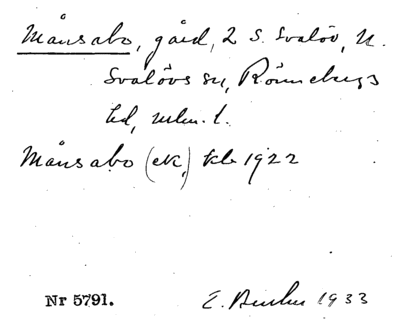 Månsabo, gård, 2 S. Svalöv, N.
Svalövs sn, Rönnebergs
hd, Mlm. l.
Månsabo (ek.) kb 1922
Nr 5791. E. 1933